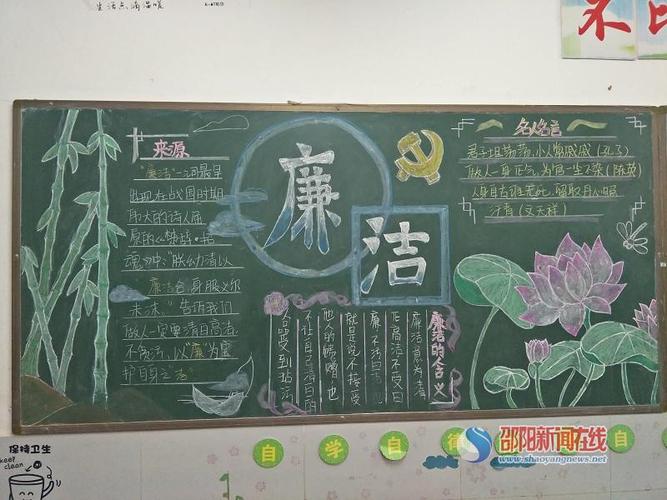 生活点滴温暖
不
来源
"廉洁"一词最早
出现在战国时期
伟大的诗人屈
原的《楚辞·招
魂》中:"朕幼清以
廉洁兮,身服义尔
未沫。"告诉我们
做人一定要清白高洁
不贪污,以"廉"为
护自身之"洁"
廉
洁
廉洁的含义
廉洁意为者
正高洁不受曰
廉,不污曰
就是说不接受
他人的馈赠,也
不让自己清白的
人品受到玷污
名人名言
君子坦荡荡,小人常戚戚(孔子)
做人一身正气,为官一尘不染(陈毅)
人生自古谁无死,留取丹心照
汗青(文天祥)
保持卫生
keep
clean
自 学 自 律 自
邵阳新闻在线
www.shaoyangnews.net